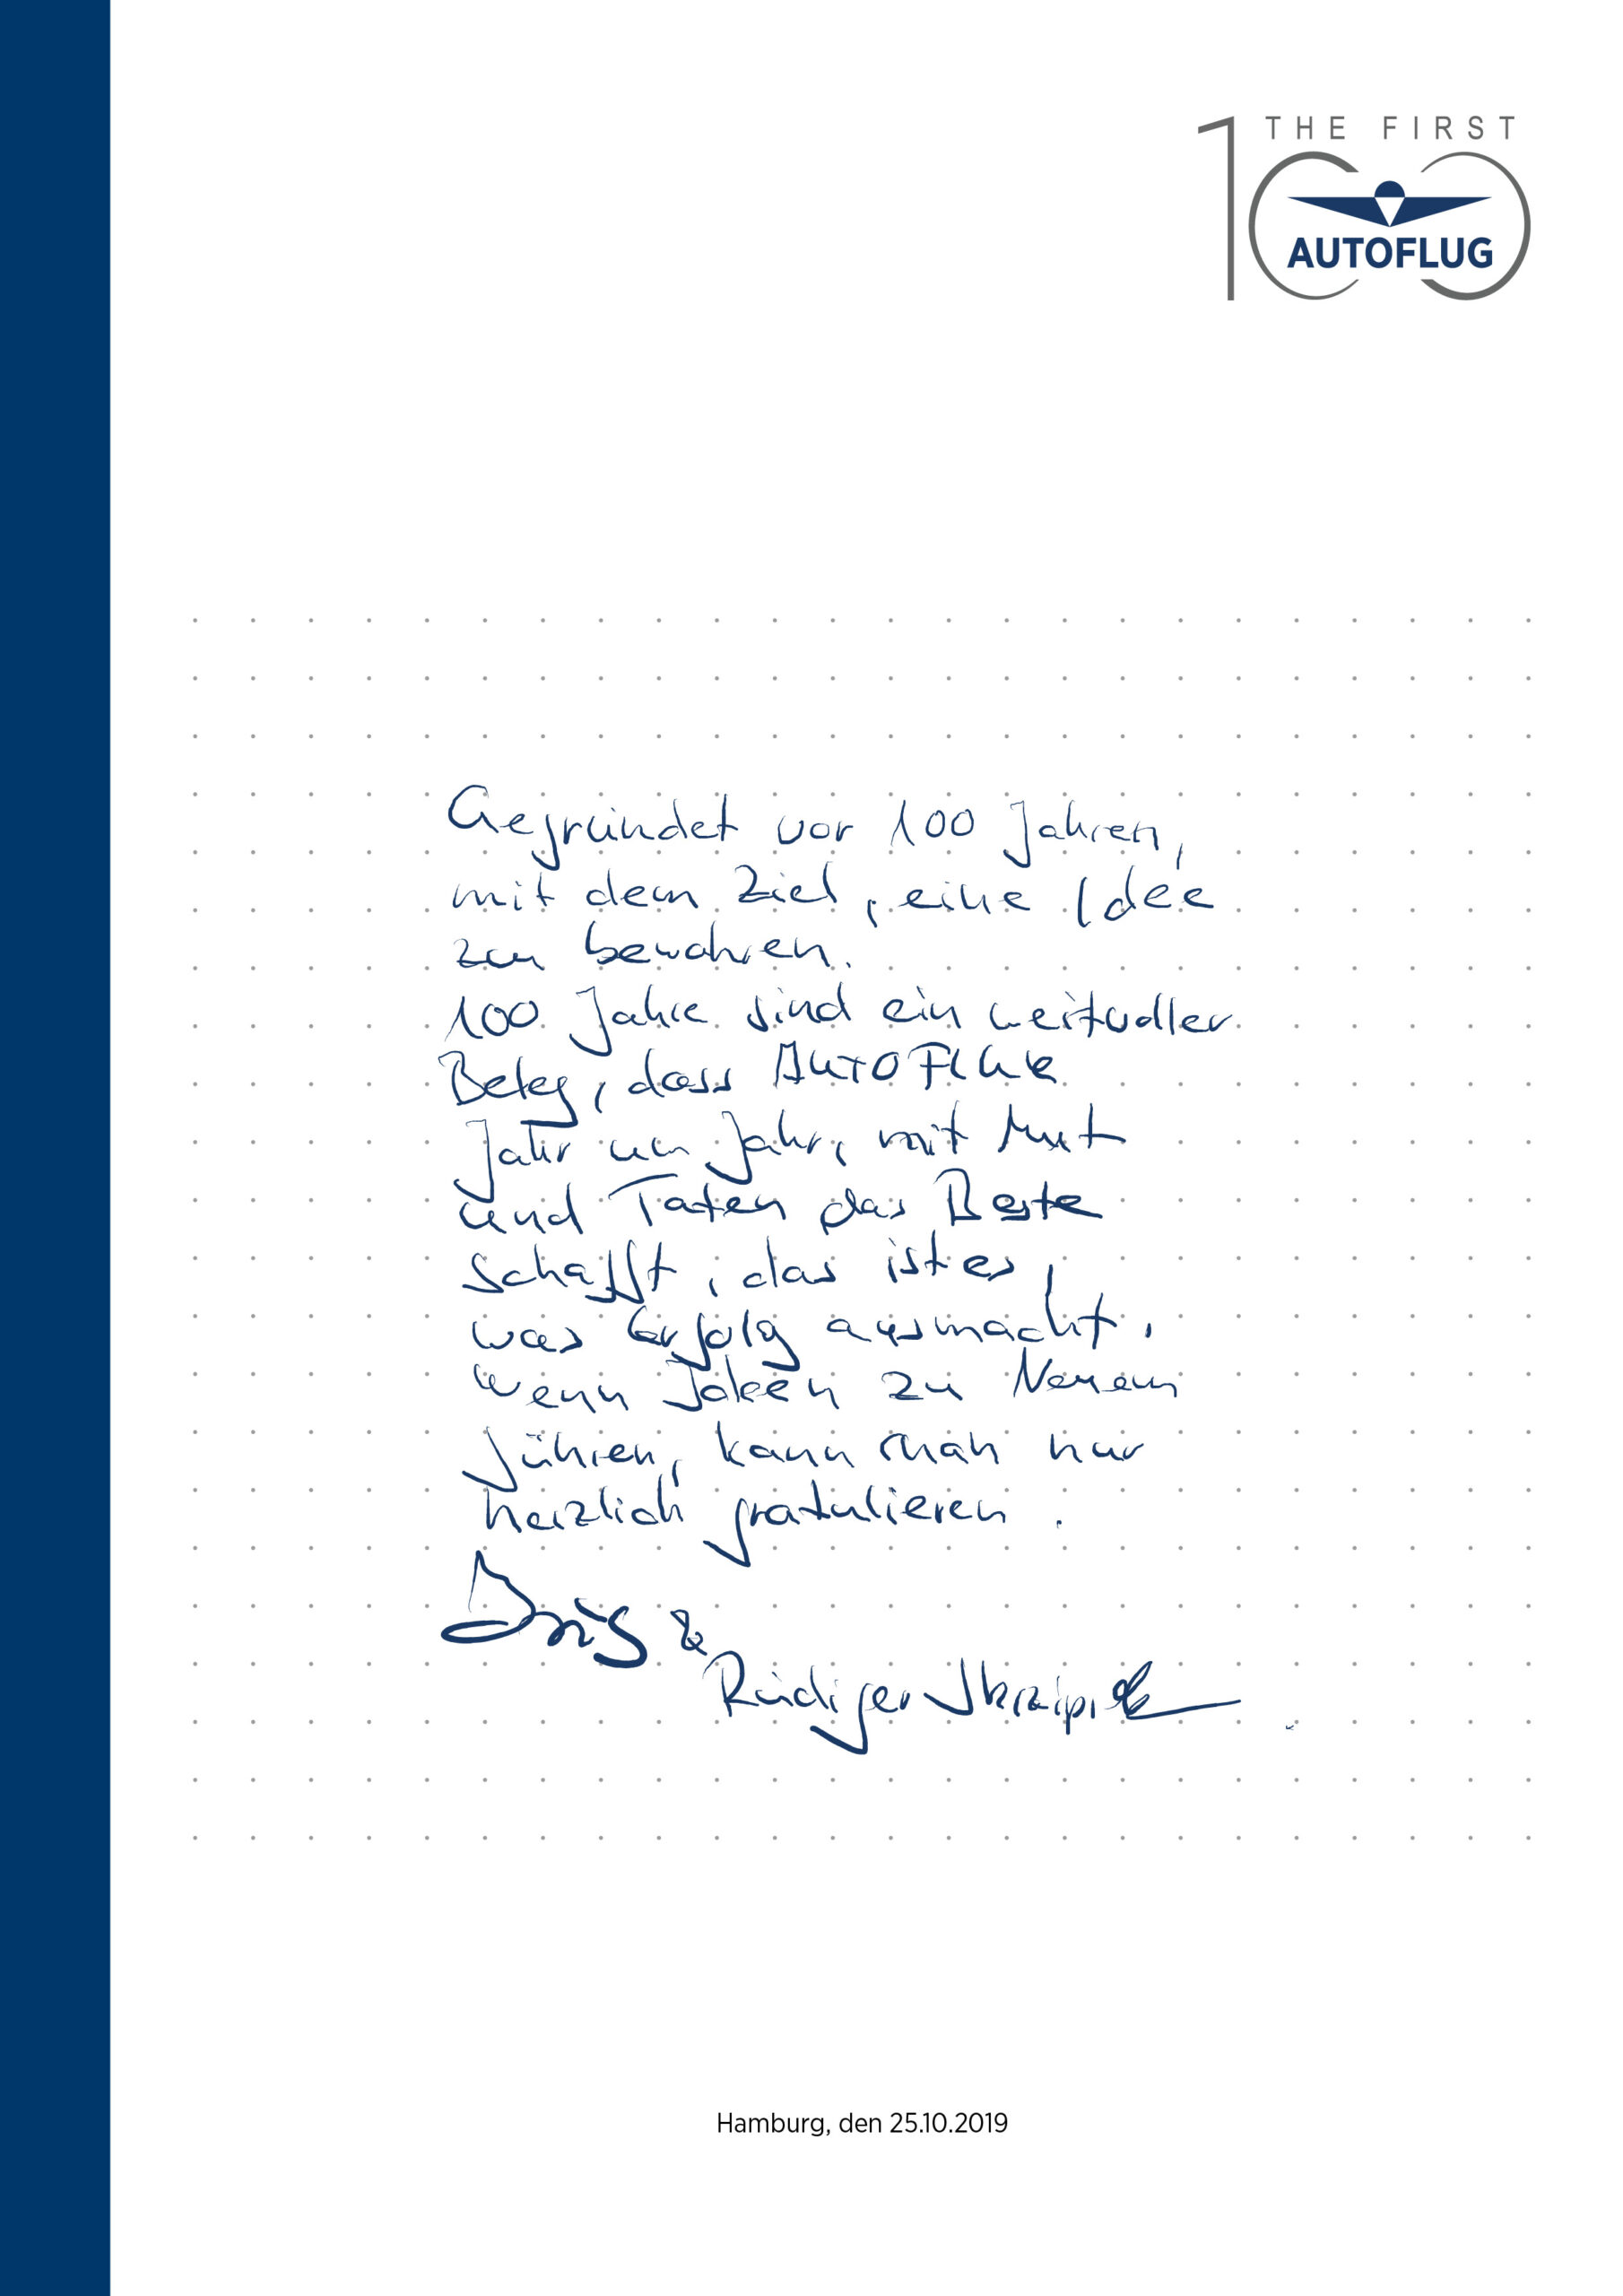 THE FIRST
100
AUTOFLUG
Gegründet vor 100 Jahren,
mit dem Ziel, eine Idee
zu bewahren.
100 Jahre sind ein wertvoller
Beleg, dass AUTOFLUG
Jahr um Jahr, mit Mut
und Taten das Beste
schafft, das ist es,
was Erfolg ausmacht.
Wenn Ideen zu Neuem
führen, kann man nur
herzlich gratulieren.
Doris &
Rüdiger
Hamburg, den 25.10.2019